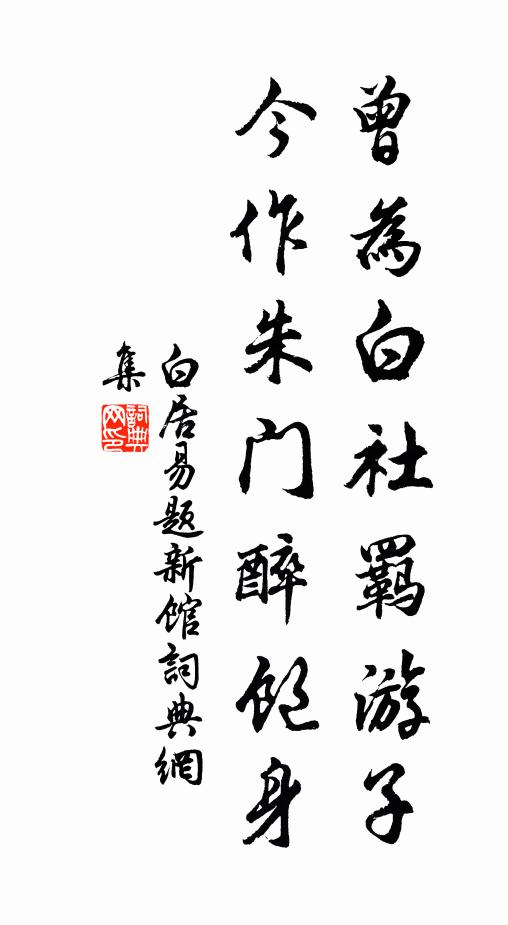 曾為白社羁游子
今作朱門醉飽身
白居易題新館詞典網
集
詞典
网印